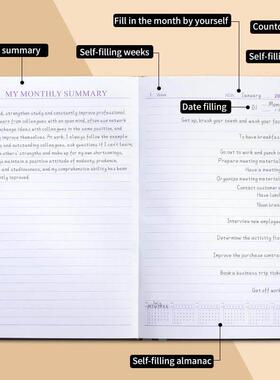 Fill in the month by yourself
Countd
summary
Self-filling weeks
Self-filling
MY MONTHLY SUMMARY
1 Week
January
20
Date filling
01
Mon
strengthen study and constantly improve professional
from colleagues with an open mind, often use network
change ideas with colleagues in the same position, and
improve themselves. At work, I always follow the example
and outstanding colleagues, ask questions if I can't learn,
others' strengths and make up for my own shortcomings,
maintain a positive attitude of modesty, prudence,
and studiousness, and my comprehensive ability has been
improved.
Get up, brush your teeth and wash your fac
To have breakfas
Go out to work and punch in
Prepare meeting materials
Have a meeting
Organize meeting materials
Contact customer
Have lunch
Noon break
Interview new employee
Determine the activity flow
Improve the purchase contract
Book a business trip ticket
Get off work
Self-filling almanac